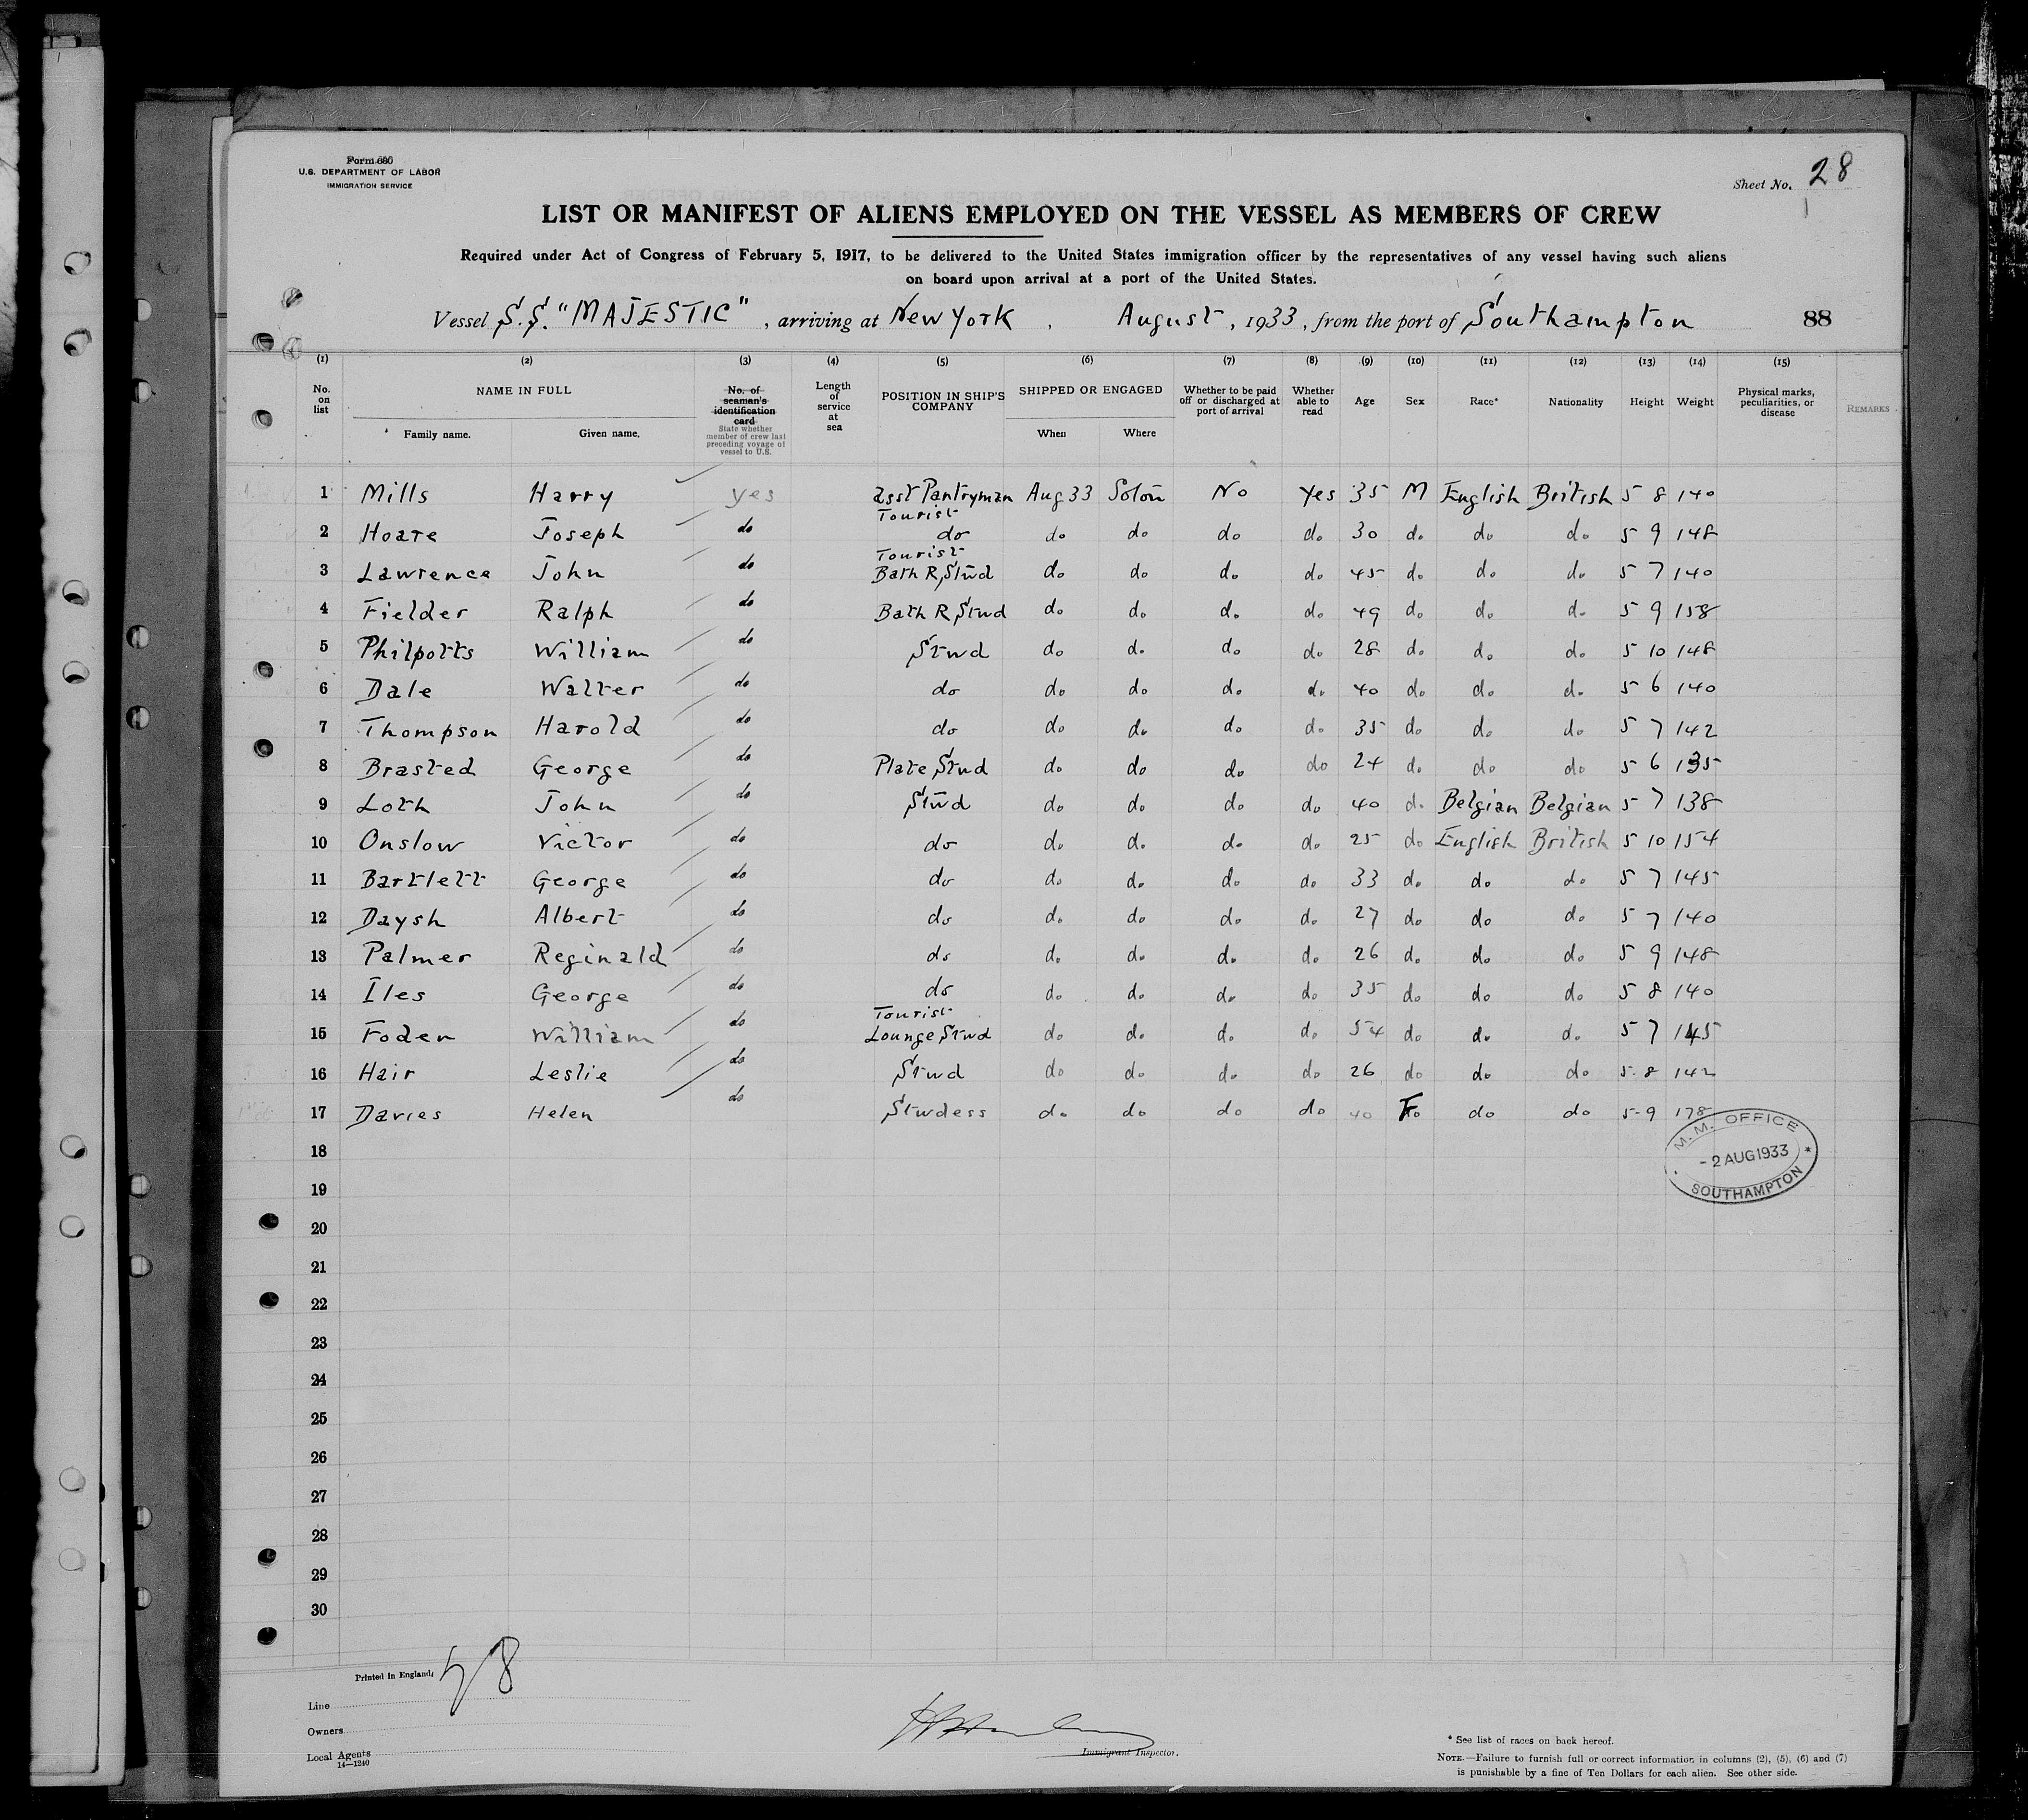 Form 690
U.S. DEPARTMENT OF LABOR
IMMIGRATION SERVICE
Sheet No. 28
LIST OR MANIFEST OF ALIENS EMPLOYED ON THE VESSEL AS MEMBERS OF CREW
Required under Act of Congress of February 5, 1917, to be delivered to the United States immigration officer by the representatives of any vessel having such aliens
on board upon arrival at a port of the United States.
Vessel S.S. "MAJESTIC", arriving at New York, August, 1933, from the port of Southampton 88
(1) (2) (3) (4) (5) (6) (7) (8) (9) (10) (11) (12) (13) (14) (15)
No. on list NAME IN FULL Family name. Given name. No. of seaman's identification card State whether member of crew last preceding voyage of vessel to U.S. Length of service at sea POSITION IN SHIP'S COMPANY SHIPPED OR ENGAGED When Where Whether to be paid off or discharged at port of arrival Whether able to read Age Sex Race* Nationality Height Weight Physical marks, peculiarities, or disease REMARKS
1 Mills Harry yes asst Pantryman Aug 33 Soton No Yes 35 M English British 5 8 140
2 Hoare Joseph do Tourist do do do do do 30 do do do 5 9 148
3 Lawrence John do Tourist Bath R, Stwd do do do do 45 do do do 5 7 140
4 Fielder Ralph do Bath R, Stwd do do do do 49 do do do 5 9 158
5 Philpotts William do Stwd do do do do 28 do do do 5 10 148
6 Dale Walter do do do do do do 40 do do do 5 6 140
7 Thompson Harold do do do do do do 35 do do do 5 7 142
8 Brasted George do Plate Stwd do do do do 24 do do do 5 6 135
9 Loth John do Stwd do do do do 40 do Belgian Belgian 5 7 138
10 Onslow Victor do do do do do do 25 do English British 5 10 154
11 Bartlett George do do do do do do 33 do do do 5 7 145
12 Daysh Albert do do do do do do 27 do do do 5 7 140
13 Palmer Reginald do do do do do do 26 do do do 5 9 148
14 Iles George do do do do do do 35 do do do 5 8 140
15 Foden William do Tourist Lounge Stwd do do do do 54 do do do 5 7 145
16 Hair Leslie do Stwd do do do do 26 do do do 5-8 142
17 Davies Helen do Stwdess do do do do 40 F do do 5-9 178
M.M. OFFICE
-2 AUG 1933
SOUTHAMPTON
18
19
20
21
22
23
24
25
26
27
28
29
30
Printed in England
Line
Owners
Local Agents
14—1240
Immigrant Inspector.
* See list of races on back hereof.
NOTE.—Failure to furnish full or correct information in columns (2), (5), (6) and (7)
is punishable by a fine of Ten Dollars for each alien. See other side.